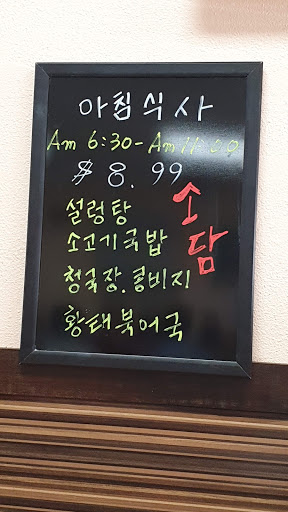 아침식사
Am 6:30-Am 11:00
$8.99
설렁탕
소고기국밥
청국장.콩비지
황태북어국
소담